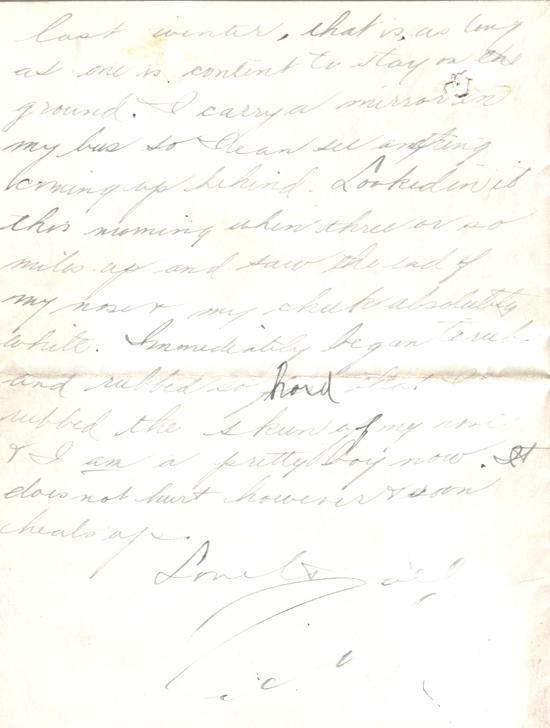 last winter, that is, as long
as one is content to stay on the
ground. I carry a mirror in
my bus so I can see anything
coming up behind. Looked in it
this morning when three or so
miles up and saw the end of
my nose & my cheek absolutely
white. Immediately began to rub
and rubbed so hard that I
rubbed the skin of my nose
& I am a pretty boy now. It
does not hurt however & soon
heals up.
Love to all